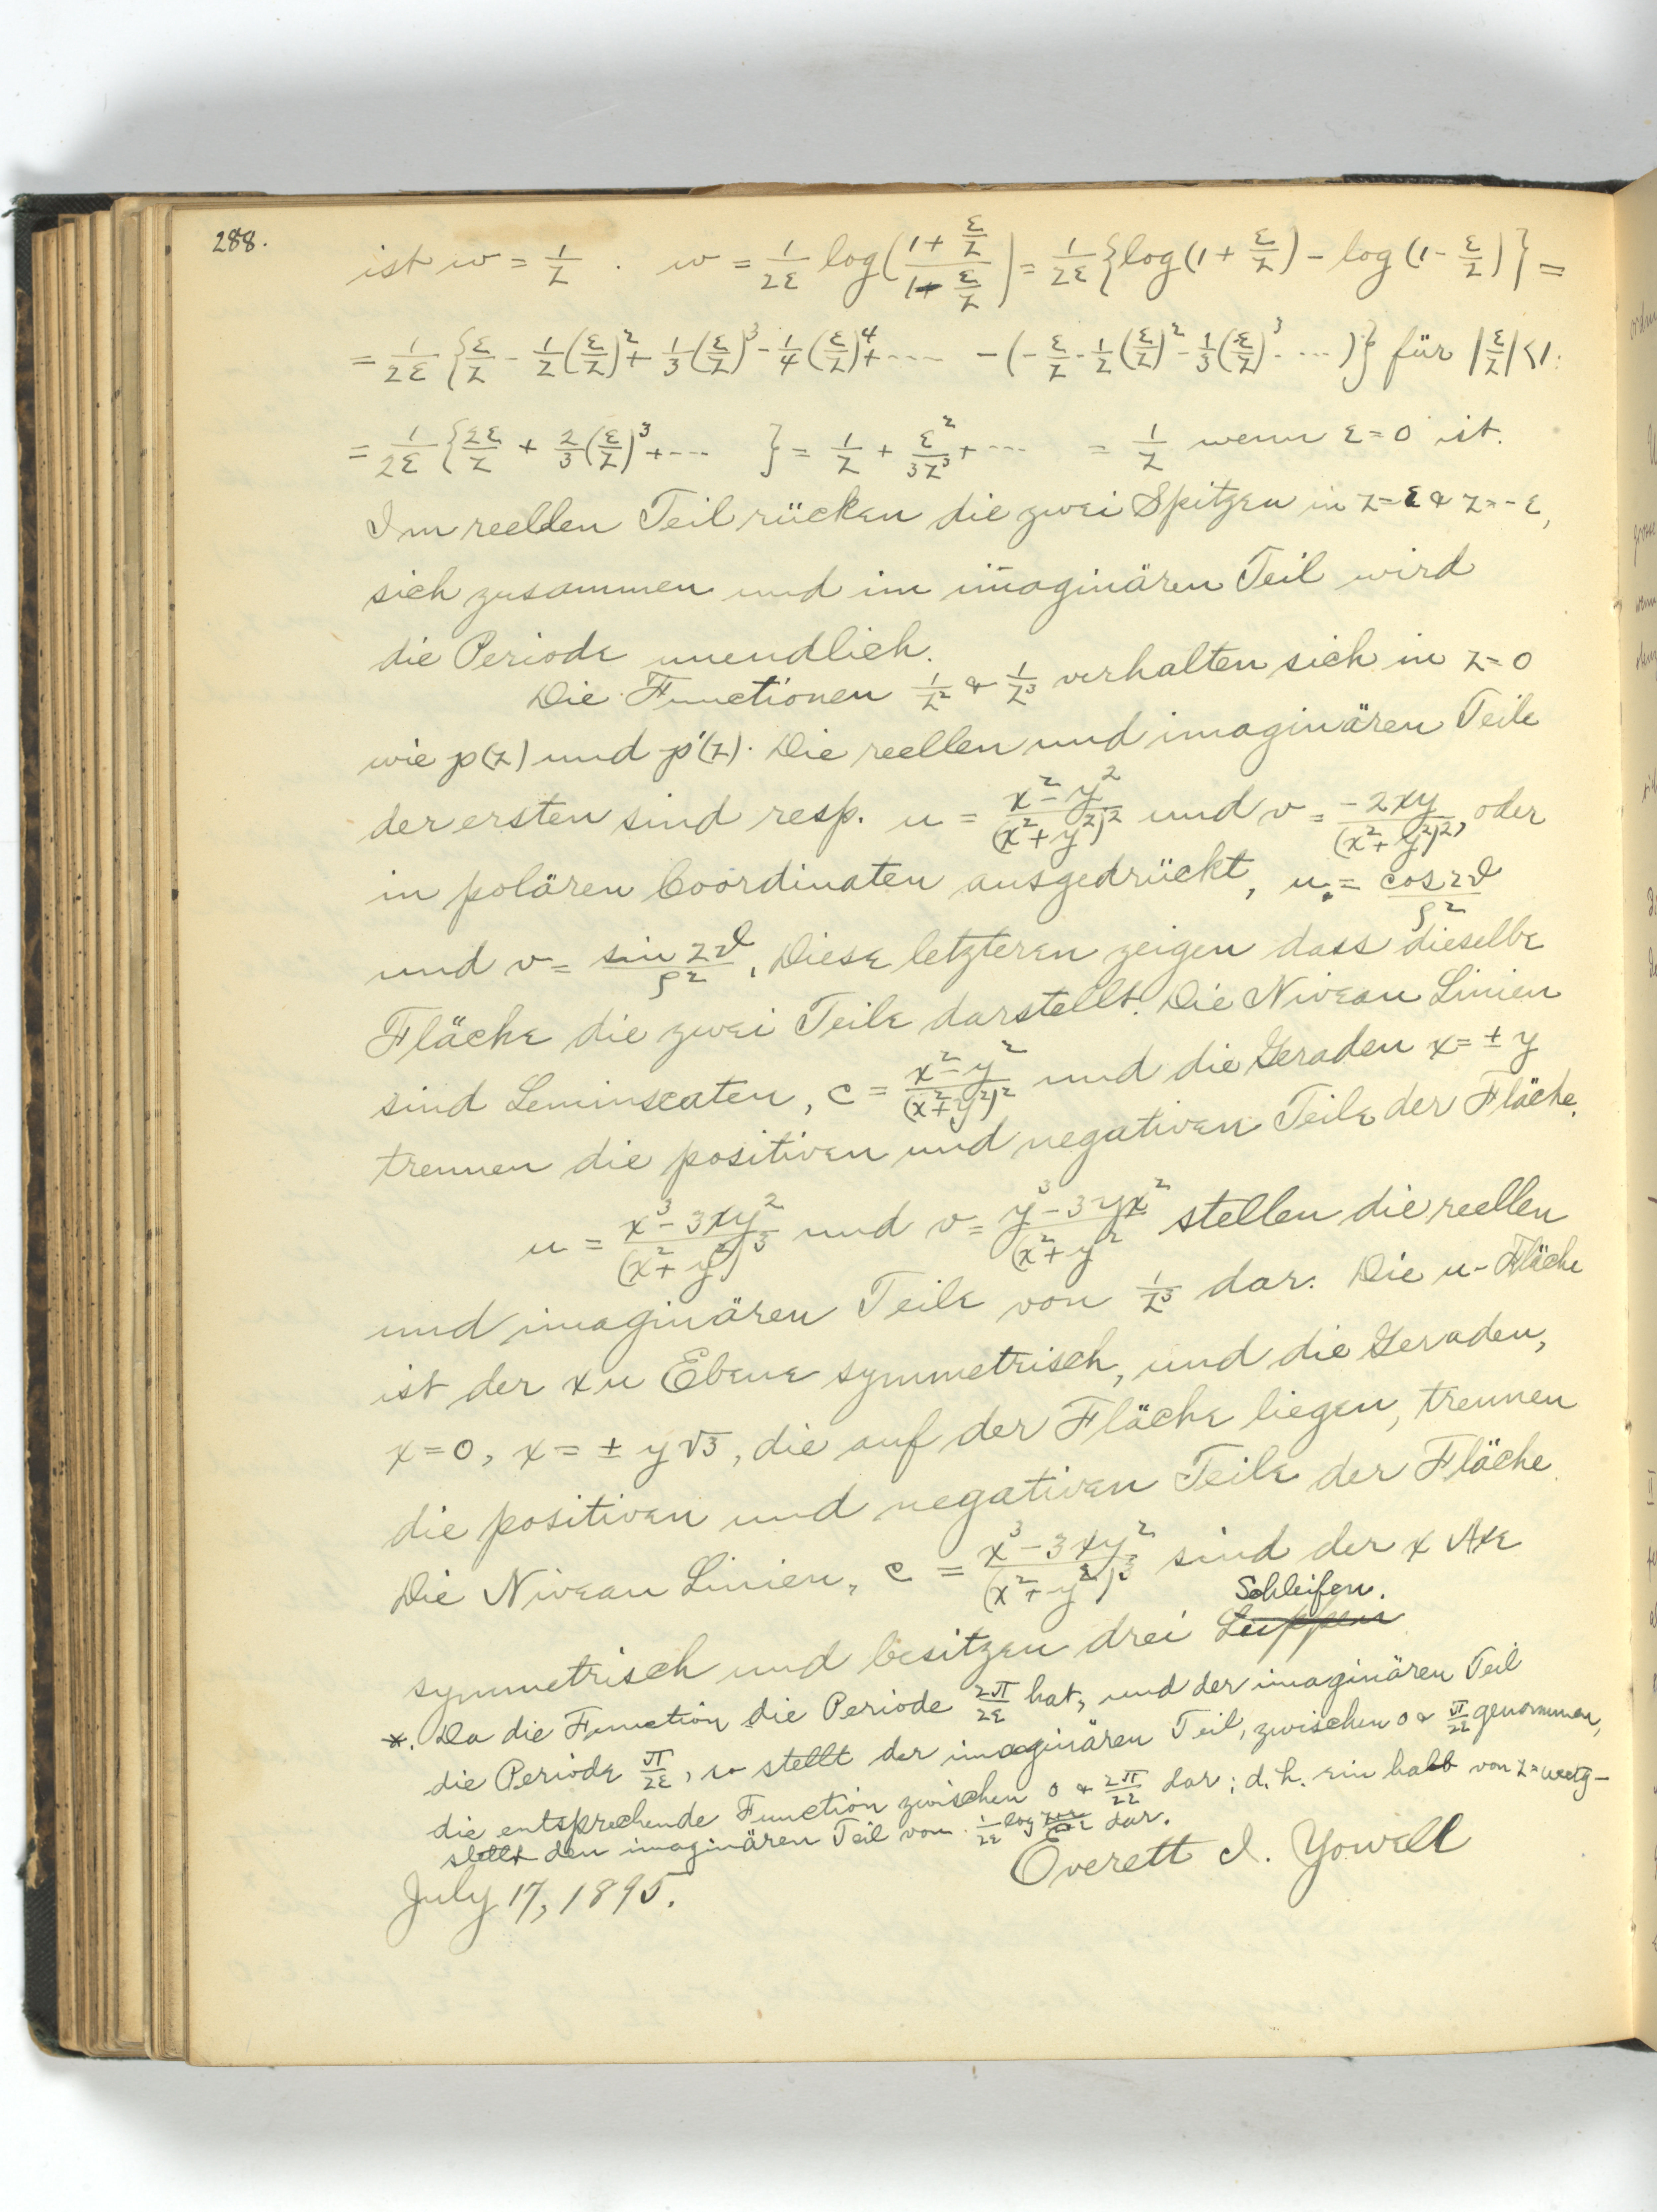 288.
ist w = 1/z . w = 1/2ε log((1+ ε/z)/(1- ε/z)) = 1/2ε {log(1 + ε/z) - log (1- ε/z)} =
= 1/2ε {ε/z - 1/2(ε/z)² + 1/3(ε/z)³ - 1/4(ε/z)⁴ + ---- - (- ε/z - 1/2(ε/z)² - 1/3(ε/z)³ - ...)} für |ε/z|<1:
= 1/2ε {2ε/z + 2/3(ε/z)³ + --- } = 1/z + ε²/3z³ + --- = 1/z wenn ε = 0 ist.
Im reellen Teil rücken die zwei Spitzen in z=ε & z=-ε,
sich zusammen und im imaginären Teil wird
die Periode unendlich.
Die Functionen 1/z² & 1/z³ verhalten sich in z=0
wie p(z) und p'(z). Die reellen und imaginären Teile
der ersten sind resp. u = (x²-y²)/(x²+y²)² und v = -2xy/(x²+y²)², oder
in polären Coordinaten ausgedrückt, u = cos 2ϑ/ρ²
und v = sin 2ϑ/ρ². Diese letzteren zeigen dass dieselbe
Fläche die zwei Teile darstellt. Die Niveau Linien
sind Leminscaten, c = (x²-y²)/(x²+y²)² und die Geraden x = ± y
trennen die positiven und negativen Teile der Fläche.
u = (x³-3xy²)/(x²+y²)³ und v = (y³-3yx²)/(x²+y² stellen die reellen
und imaginären Teile von 1/z³ dar. Die u-Fläche
ist der xu Ebene symmetrisch, und die Geraden,
x=0, x = ± y√3, die auf der Fläche liegen, trennen
die positiven und negativen Teile der Fläche.
Die Niveau Linien, c = (x³-3xy²)/(x²+y²)³ sind der x Axe
Schleifen.
symmetrisch und besitzen drei Luppen
*. Da die Function die Periode 2π/2ε hat, und der imaginären Teil
die Periode π/2ε, so stellt der imaginären Teil, zwischen 0 & π/2ε genommen,
die entsprechende Function zwischen 0 & 2π/2ε dar; d.h. ein halb von
stellt den imaginären Teil von 1/2ε log dar.
Everett I. Yowell
July 17, 1895.